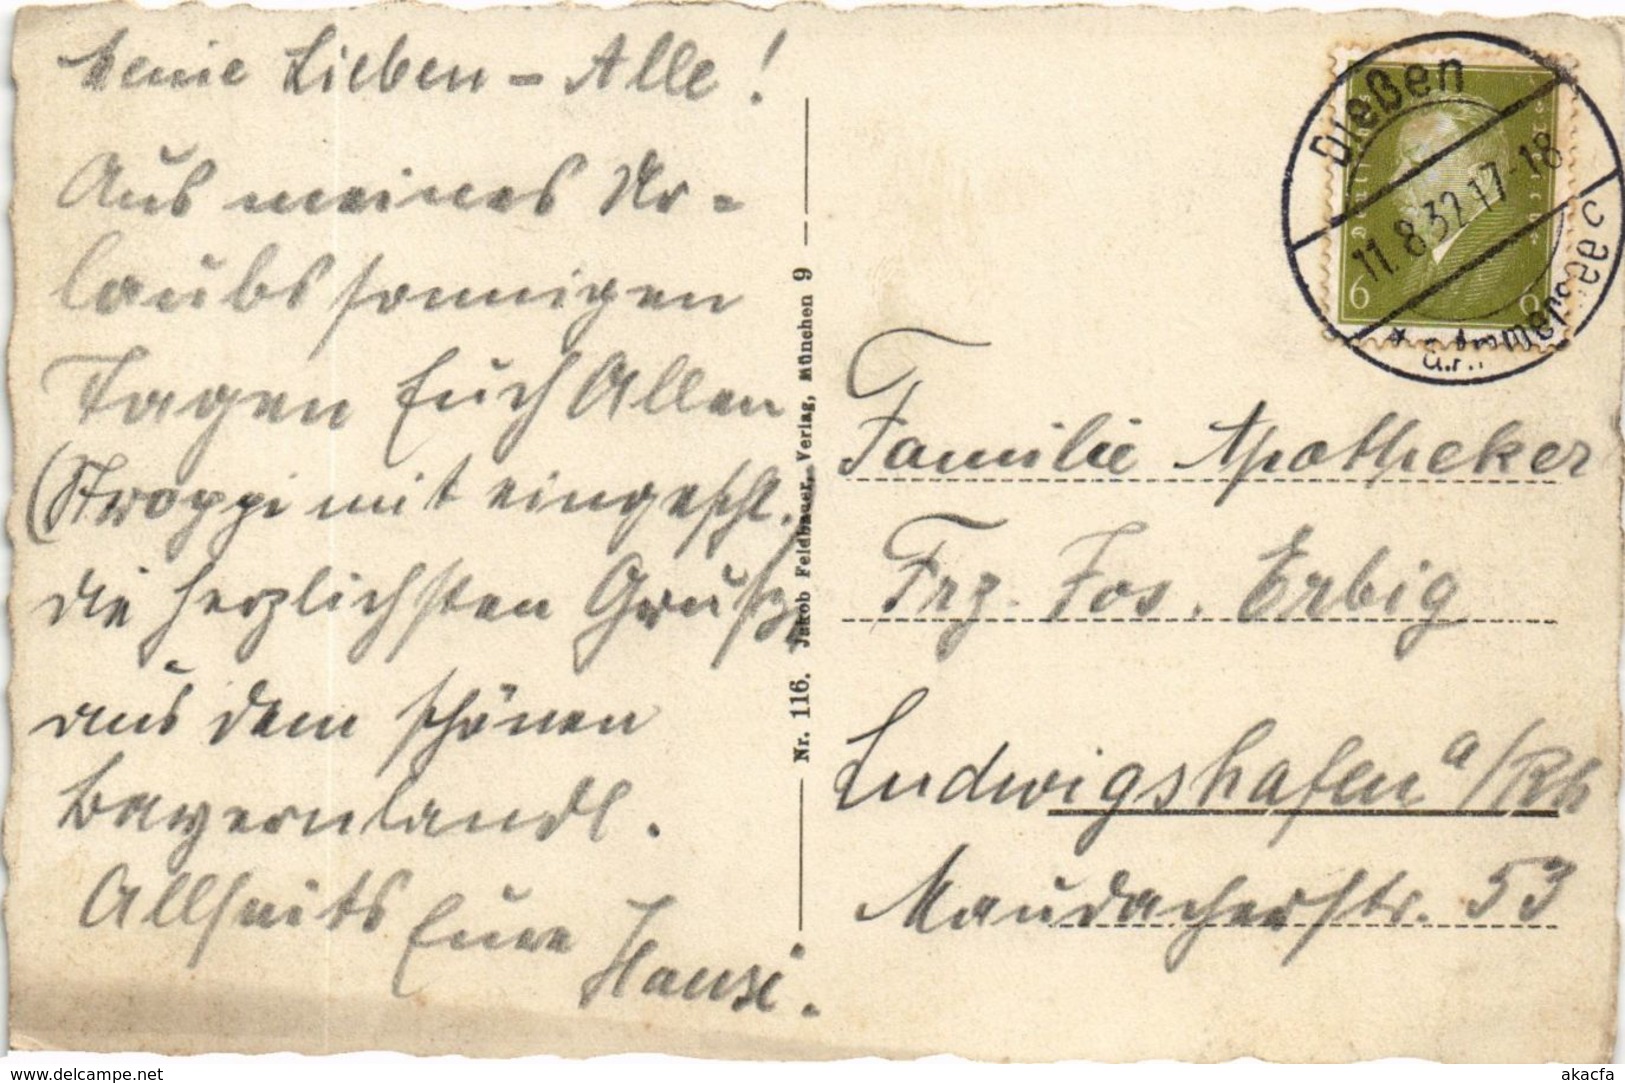 Meine Lieben - Alle!
Aus meines Ur-
laubs sonnigen
Tagen Euch Allen
(Stroppi mit eingeschl.)
die herzlichsten Grüße
aus dem schönen
Bayernlandl.
Allseits Eure Hansi.
Nr. 116. Jakob Feldbauer, Verlag, München 9
Dießen
11.8.32.17-18
* a. Ammersee c
6 6
Familie Apotheker
Frz. Jos. Erbig
Ludwigshafen a/Rh
Maudacherstr. 53
www.delcampe.net
akacfa